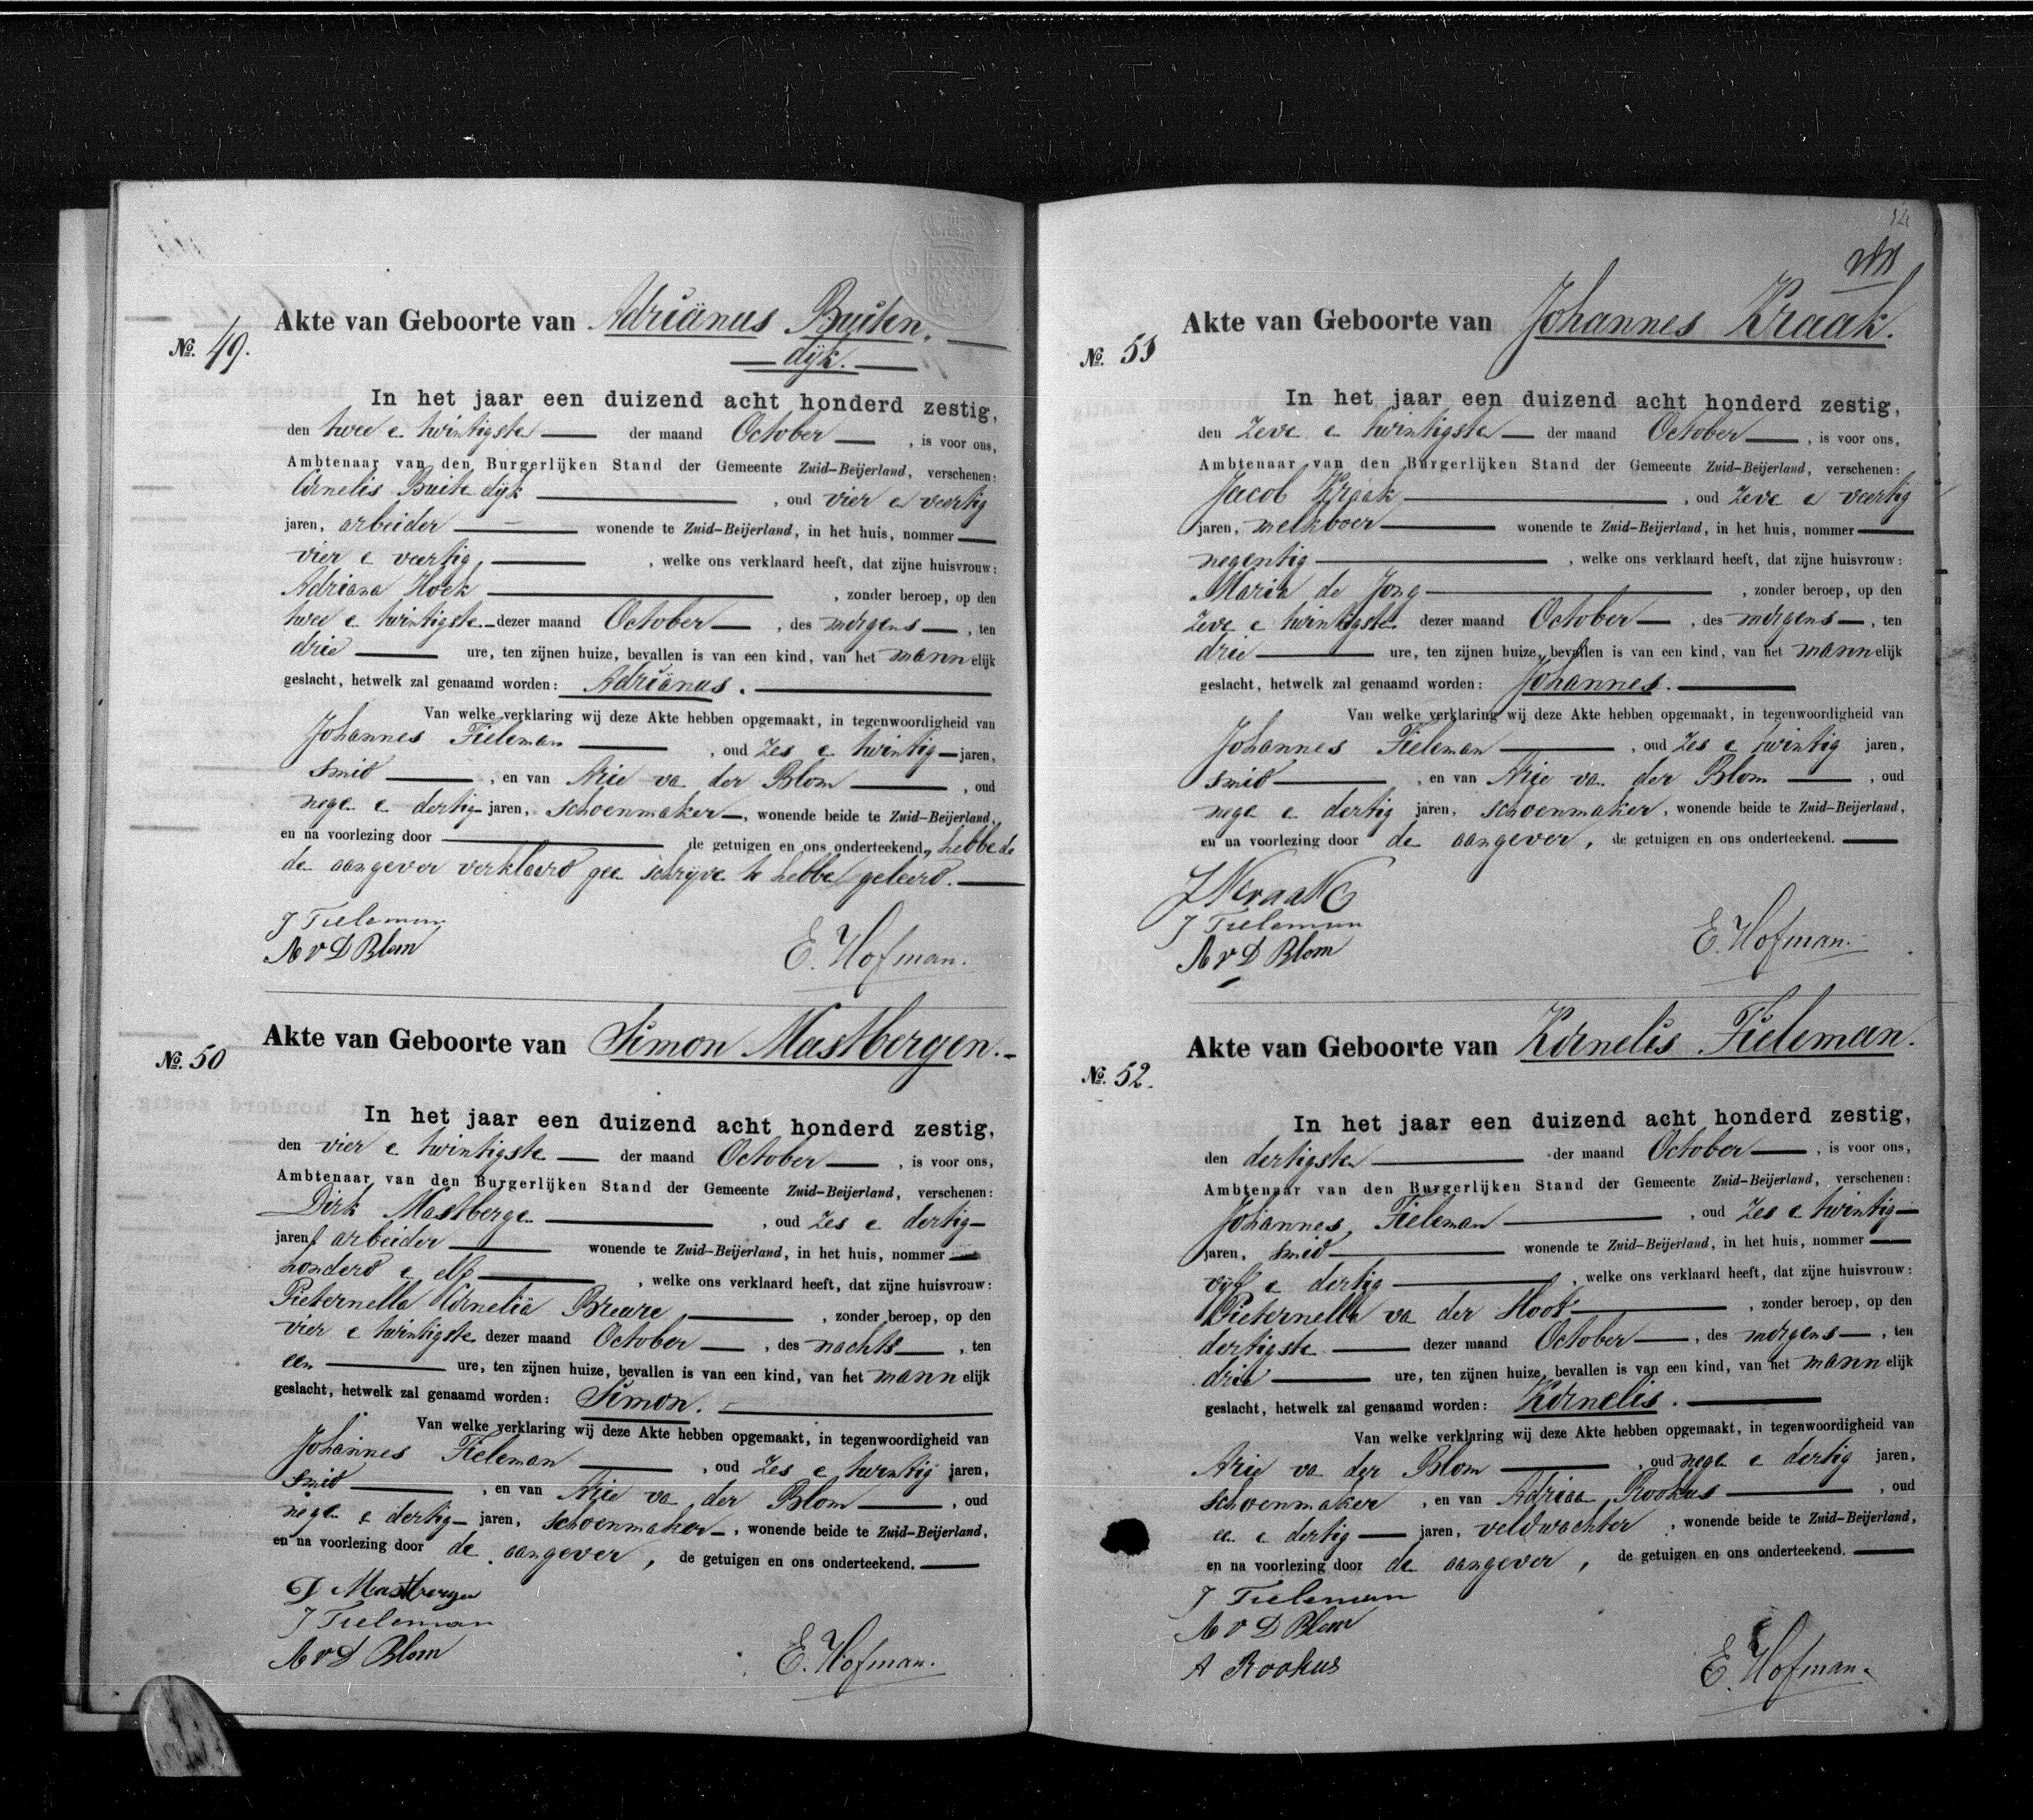 No. 49.
Akte van Geboorte van Adriänus Buiten,
dijk.
In het jaar een duizend acht honderd zestig,
den twee e twintigste der maand October, is voor ons,
Ambtenaar van den Burgerlijken Stand der Gemeente Zuid-Beijerland, verschenen:
Cornelis Buite dijk, oud vier e veertig
jaren, arbeider wonende te Zuid-Beijerland, in het huis, nommer
vier e veertig, welke ons verklaard heeft, dat zijne huisvrouw:
Adriana Hoek, zonder beroep, op den
twee e twintigste dezer maand October, des morgens, ten
drie ure, ten zijnen huize, bevallen is van een kind, van het mannelijk
geslacht, hetwelk zal genaamd worden: Adriänus.
Van welke verklaring wij deze Akte hebben opgemaakt, in tegenwoordigheid van
Johannes Tieleman, oud zes e twintig jaren,
smid, en van Arie va der Blom, oud
nege e dertig jaren, schoenmaker, wonende beide te Zuid-Beijerland,
en na voorlezing door de getuigen en ons onderteekend, hebbede
de aangever verklaard gee schrijve te hebbe geleerd.
J Tieleman
A v D Blom
E. Hofman.
No. 50
Akte van Geboorte van Simon Mastbergen.
In het jaar een duizend acht honderd zestig,
den vier e twintigste der maand October, is voor ons,
Ambtenaar van den Burgerlijken Stand der Gemeente Zuid-Beijerland, verschenen:
Dirk Mastberge, oud zes e dertig
jaren, arbeider wonende te Zuid-Beijerland, in het huis, nommer
honderd e elf, welke ons verklaard heeft, dat zijne huisvrouw:
Pieternella Kornelia Breure, zonder beroep, op den
vier e twintigste dezer maand October, des nachts, ten
een ure, ten zijnen huize, bevallen is van een kind, van het mannelijk
geslacht, hetwelk zal genaamd worden: Simon.
Van welke verklaring wij deze Akte hebben opgemaakt, in tegenwoordigheid van
Johannes Tieleman, oud zes e twintig jaren,
smid, en van Arie va der Blom, oud
nege e dertig jaren, schoenmaker, wonende beide te Zuid-Beijerland,
en na voorlezing door de aangever, de getuigen en ons onderteekend.
D Mastberge
J Tieleman
A v D Blom
E. Hofman.
No. 51
Akte van Geboorte van Johannes Kraak.
In het jaar een duizend acht honderd zestig,
den zeve e twintigste der maand October, is voor ons,
Ambtenaar van den Burgerlijken Stand der Gemeente Zuid-Beijerland, verschenen:
Jacob Kraak, oud zeve e veertig
jaren, melkboer wonende te Zuid-Beijerland, in het huis, nommer
negentig, welke ons verklaard heeft, dat zijne huisvrouw:
Maria de Jong, zonder beroep, op den
zeve e twintigste dezer maand October, des morgens, ten
drie ure, ten zijnen huize, bevallen is van een kind, van het mannelijk
geslacht, hetwelk zal genaamd worden: Johannes.
Van welke verklaring wij deze Akte hebben opgemaakt, in tegenwoordigheid van
Johannes Tieleman, oud zes e twintig jaren,
smid, en van Arie va der Blom, oud
nege e dertig jaren, schoenmaker, wonende beide te Zuid-Beijerland,
en na voorlezing door de aangever, de getuigen en ons onderteekend.
J Kraak
J Tieleman
A v D Blom
E. Hofman.
No. 52.
Akte van Geboorte van Kornelis Tieleman.
In het jaar een duizend acht honderd zestig,
den dertigste der maand October, is voor ons,
Ambtenaar van den Burgerlijken Stand der Gemeente Zuid-Beijerland, verschenen:
Johannes Tieleman, oud zes e twintig
jaren, smid wonende te Zuid-Beijerland, in het huis, nommer
vijf e dertig, welke ons verklaard heeft, dat zijne huisvrouw:
Pieternella va der Hoek, zonder beroep, op den
dertigste dezer maand October, des morgens, ten
drie ure, ten zijnen huize, bevallen is van een kind, van het mannelijk
geslacht, hetwelk zal genaamd worden: Kornelis.
Van welke verklaring wij deze Akte hebben opgemaakt, in tegenwoordigheid van
Arie va der Blom, oud nege e dertig jaren,
schoenmaker, en van Adriaa Rookus, oud
ee e dertig jaren, veldwachter, wonende beide te Zuid-Beijerland,
en na voorlezing door de aangever, de getuigen en ons onderteekend.
J Tieleman
A v D Blom
A Rookus
E. Hofman.